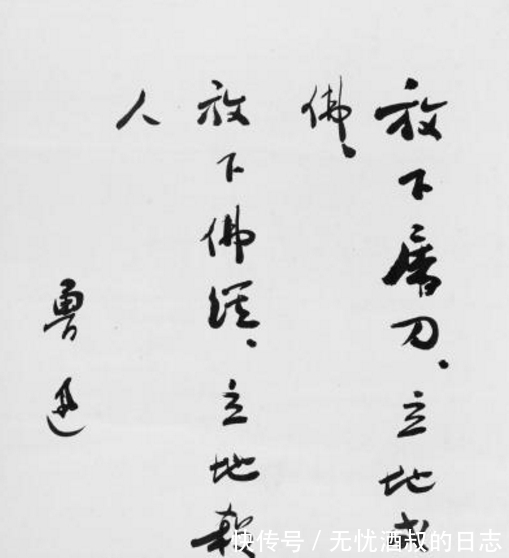 放下屠刀、立地成
佛、
放下佛经、立地杀
人
鲁迅
快传号 / 无忧酒叔的日志